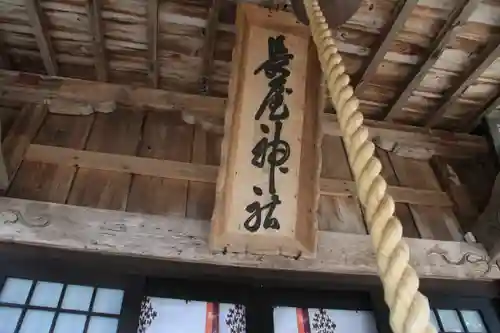 長尾神社